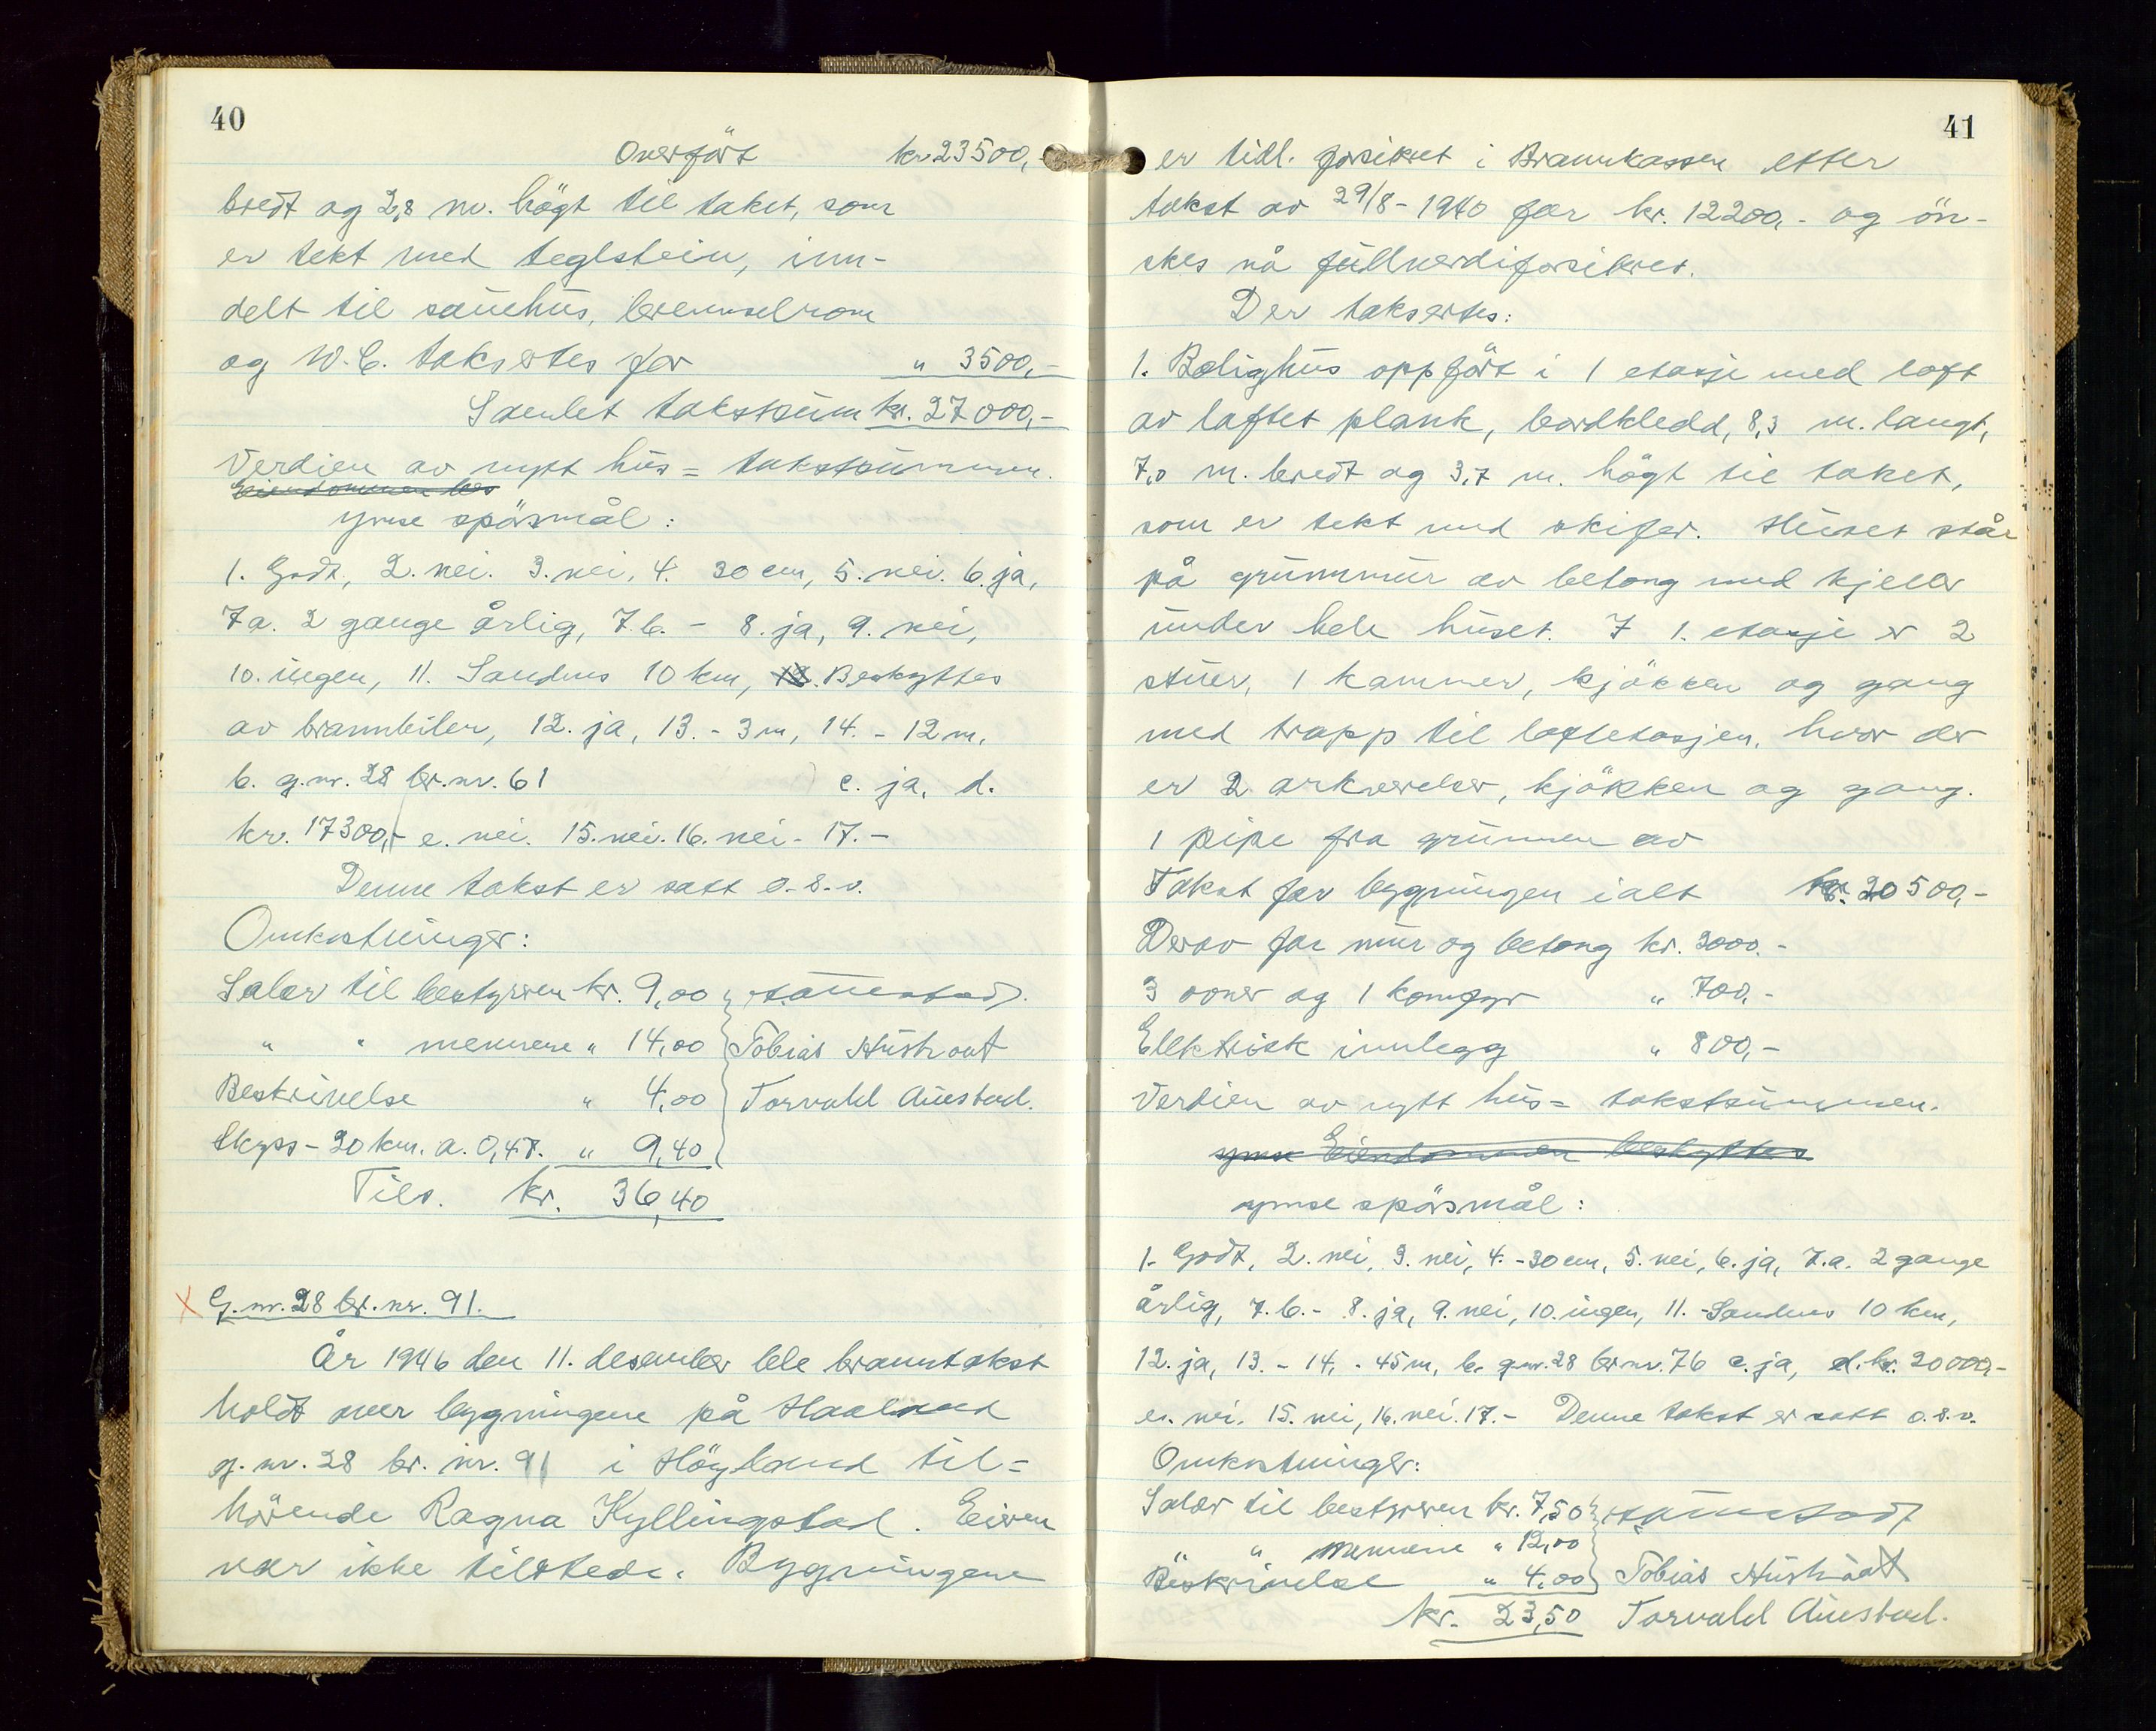 40
Overført kr. 23500,-
bredt og 2,8 m. högt til taket, som
er tekt med teglstein, inn-
delt til sauehus, brenselrom
og W.C. taksertes for " 3500,-
Samlet takstsum kr. 27000,-
Verdien av nytt hus = takstsummen.
ymse spörsmål:
1. Godt, 2. nei. 3. nei, 4. 30 cm, 5. nei. 6. ja,
7a. 2 gange årlig, 7.b. - 8. ja, 9. nei,
10. ingen, 11. Sandnes 10 km, Beskyttes
av brannbiler, 12. ja, 13. - 3 m, 14. - 12 m.
b. g.nr. 28 br.nr. 61 c. ja, d.
kr. 17300,- e. nei. 15. nei. 16. nei - 17. -
Denne takst er satt o.s.v.
Omkostninger:
Salær til bestyreren kr. 9,00
" " mennene " 14,00 Tobias Hustvedt
Beskrivelse " 4,00 Torvald Austad.
Skyss - 20 km. a. 0,47. " 9,40
Tils. kr. 36,40
X G.nr. 28 br.nr. 91.
År 1946 den 11. desember ble branntakst
holdt over bygningene på Haaland
g.nr. 28 br. nr. 91 i Höyland til=
hörende Ragna Kyllingstad. Eieren
var ikke tilstede. Bygningene
41
er tidl. forsikret i Brannkassen etter
takst av 29/8 - 1940 for kr. 12200,- og ön-
skes nå fullverdiforsikret.
Der taksertes:
1. Bolighus oppfört i 1 etasje med loft
av laftet plank, bordkledd, 8,3 m. langt,
7,0 m. bredt og 3,7 m. högt til taket,
som er tekt med skifer. Huset står
på grunnmur av betong med kjeller
under hele huset. I 1. etasje er 2
stuer, 1 kammer, kjökken og gang
med trapp til loftetasjen, hvor der
er 2 arkverelser, kjökken og gang.
1 pipe fra grunnen av
Takst for bygningen ialt kr. 20500,-
Derav for mur og betong kr. 3000.-
3 ovner og 1 komfyr " 700,-
Elektrisk innlegg " 800,-
Verdien av nytt hus = takstsummen.
ymse Eiendommen beskyttes
ymse spörsmål:
1. Godt, 2. nei, 3. nei, 4. - 30 cm, 5. nei, 6. ja, 7.a. 2 gange
årlig, 7.b. - 8. ja, 9. nei, 10. ingen, 11. - Sandnes 10 km,
12. ja, 13. - 14. - 45 m, b. g.nr. 28 br.nr. 76 c. ja, d. kr. 20000,-
e. nei. 15. nei, 16. nei. 17. - Denne takst er satt o.s.v.
Omkostninger:
Salær til bestyreren kr. 7,50
" " mennene " 12,00
Beskrivelse " 4,00 Tobias Hustvedt
kr. 23,50 Torvald Austad.